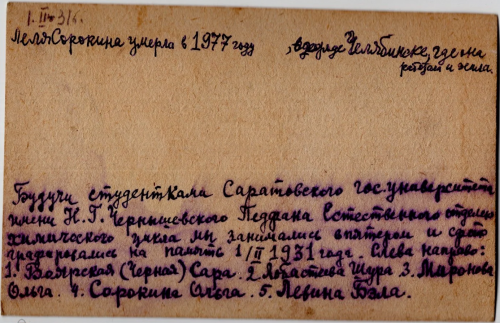 1. II 31г.
Леля Сорокина умерла в 1977 году, в городе Челябинске, где она
работ и жила.
Будучи студентками Саратовского гос. университета
имени Н. Г. Чернышевского Педфака Естественного отделен
химического цикла мы занимались впятером и сфото
графировались на память 1/II 1931 года. Слева направо:
1. Боярская (Черная) Сара. 2. Шура 3. Миронова
Ольга. 4. Сорокина Ольга. 5. Левина Бэла.